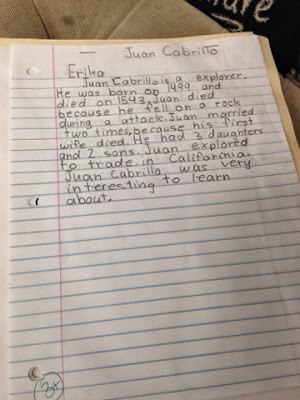 Juan Cabrillo
Erika
Juan Cabrillo is a explorer.
He was born on 1499 and
died on 1543. Juan died
because he fell on a rock
during a attack. Juan married
two times, because his first
wife died. He had 3 daughters
and 2 sons. Juan explored
to trade in Califarinia.
Juan Cabrillo was very
interesting to learn
about.
3+